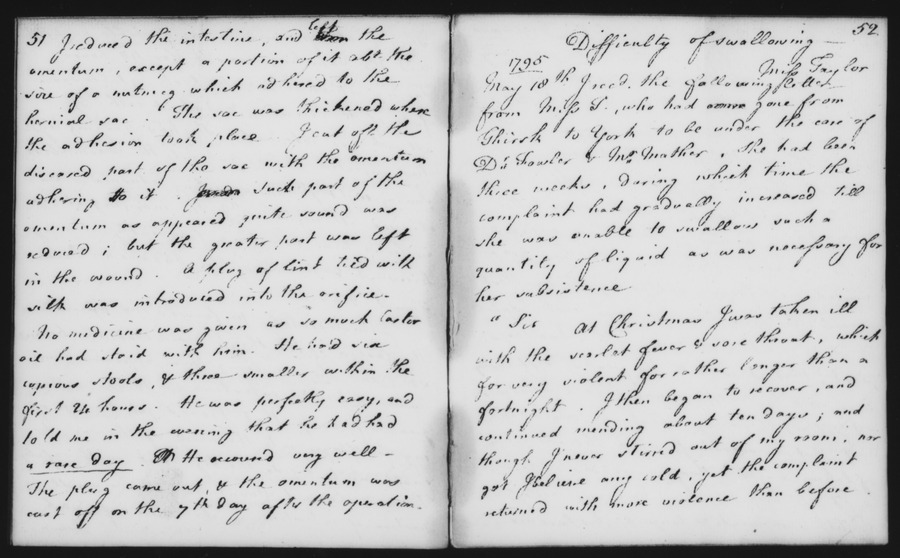 51 I reduced the intestine, and left the
omentum, except a portion of it abt. the
size of a nutmeg which adhered to the
hernial sac. The sac was thickened where
the adhesion took place. I cut off the
diseased part of the sac with the omentum
adhering to it. such part of the
omentum as appeared quite sound was
reduced; but the greater part was left
in the wound. A plug of lint tied with
silk was introduced into the orifice.
No medicine was given as so much Castor
oil had staid with him. He had six
copious stools, & three smaller within the
first 24 hours. He was perfectly easy, and
told me in the evening that he had had
a rare day. He recovered very well.
The plug came out, & the omentum was
cast off on the 7th day after the operation.
52
Difficulty of swallowing
1795 Miss Taylor
May 10th I recd. the following letter
from Miss T, who had gone from
Thirsk to York to be under the care of
Dr. Fowler & Mr. Mather. She had been
three weeks, during which time the
complaint had gradually increased till
she was unable to swallow such a
quantity of liquid as was necessary for
her subsistence
"Sir At Christmas I was taken ill
with the scarlet fever & sore throat, which
for very violent for rather longer than a
fortnight. I then began to recover, and
continued mending about ten days; and
though I never stirred out of my room, nor
got I believe any cold, yet the complaint
returned with more violence than before